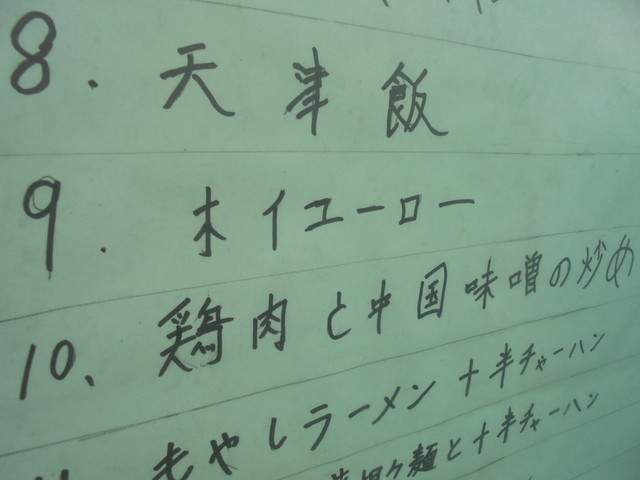 8. 天津飯
9. ホイユーロー
10、鶏肉と中国味噌の炒め
もやしラーメン+半チャーハン
麺と+半チャーハン